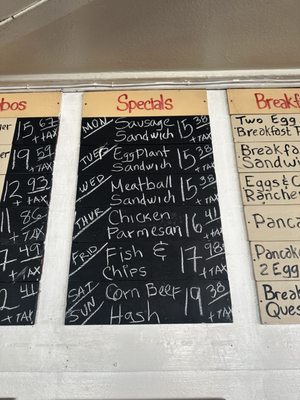 bos
Specials
Breakf
ger
15.67
+TAX
ger
19.59
+TAX
12.93
+TAX
11.86
+TAX
7.49
+TAX
2.41
+TAX
MON
Sausage
Sandwich
15.38
+TAX
TUES
EggPlant
Sandwich
15.38
+TAX
WED
Meatball
Sandwich
15.38
+TAX
THUR
Chicken
Parmesan
16.41
+TAX
FRID
Fish &
Chips
17.98
+TAX
SAT
SUN
Corn Beef
Hash
19.38
+TAX
Two Egg
Breakfast P
Breakfa
Sandwi
Eggs & C
Ranche
Pancal
Pancake
2 Egg
Break
Ques